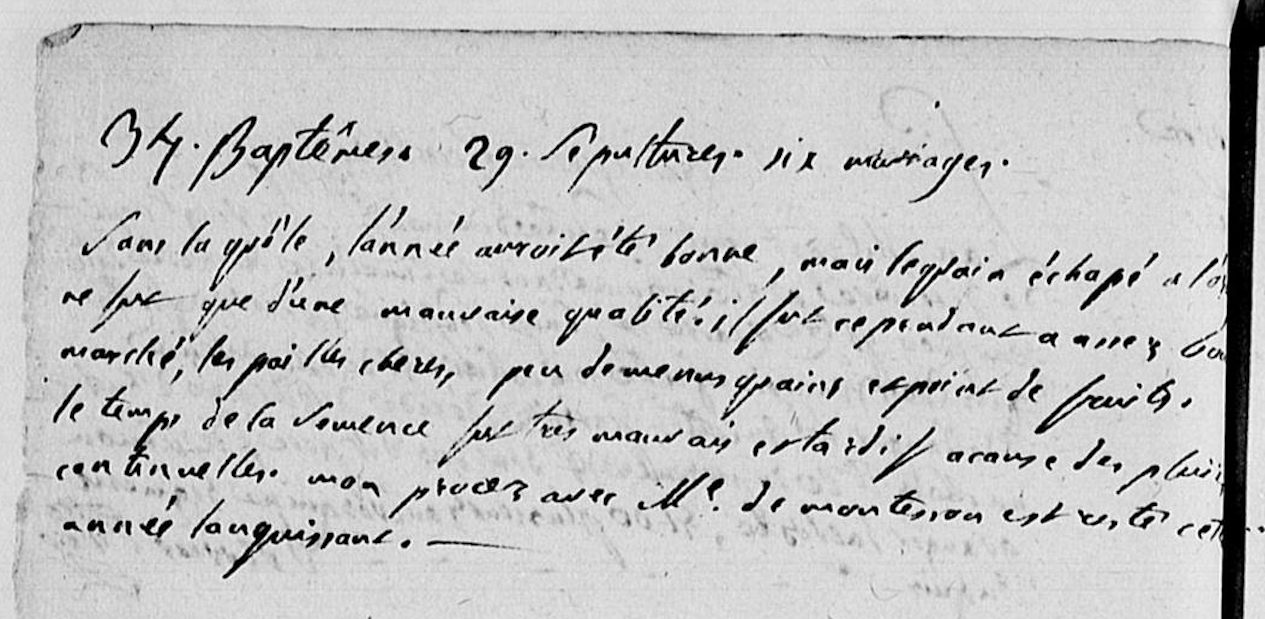 34. Baptêmes. 29. Sepultures. six mariages.
Sans la grêle, l'année auroit été bonne, mais le grain échapé a
ne fut que d'une mauvaise qualité; il fut cependant a assez bon
marché, les pailles cheres, peu de menus grains et point de fruits.
le temps de la semence fut tres mauvais et tardif a cause des pluies
continuelles. mon procez avec Me. de montesson est resté cette
année languissant. —